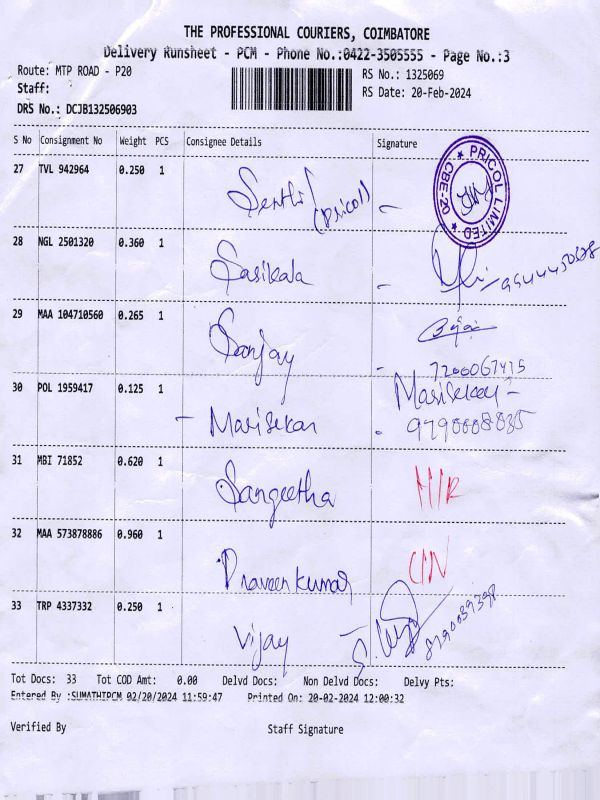 THE PROFESSIONAL COURIERS, COIMBATORE
Delivery Runsheet - PCM - Phone No.:0422-3505555 - Page No.:3
Route: MTP ROAD - P20 RS No.: 1325069
Staff: RS Date: 20-Feb-2024
DRS No.: DCJB132506903
S No Consignment No Weight PCS Consignee Details Signature
27 TVL 942964 0.250 1 Senthil (Pricol)
PRICOL LIMITED ★ CBE-20 ★
28 NGL 2501320 0.360 1 Sasikala
29 MAA 104710560 0.265 1 Sanjay
7200067415
30 POL 1959417 0.125 1 - Marisekar - Marisekar -
9790008835
31 MBI 71852 0.620 1 Sangeetha
32 MAA 573878886 0.960 1 Praveen kumar
33 TRP 4337332 0.250 1 Vijay
Tot Docs: 33 Tot COD Amt: 0.00 Delvd Docs: Non Delvd Docs: Delvy Pts:
Entered By :SUMATHIPCM 02/20/2024 11:59:47 Printed On: 20-02-2024 12:00:32
Verified By Staff Signature